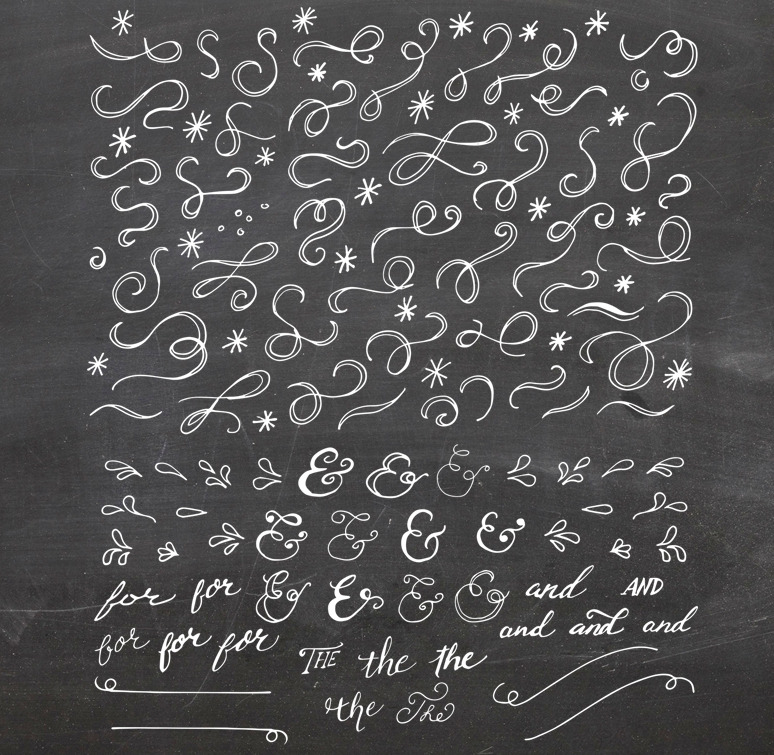 & & &
& & & &
for for & & & & and AND
for for for and and and
THE the the
the The